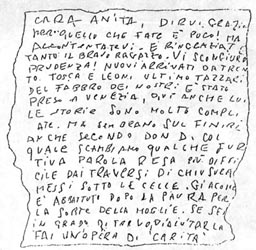 CARA ANITA, DIRVI GRAZIE
PER QUELLO CHE FATE È POCO! MA
ACCONTENTATEVI. E RINGRAZIATE
TANTO IL BRAVO RAGAZZO. VI SCONGIURO
PRUDENZA! NUOVI ARRIVATI DA TREN
TO. TOSCA E LEONI. ULTIMO TAZZARI
DEL FABBRO DEI NOSTRI È STATO
PRESO A VENEZIA, QUI ANCHE LUI.
LE STORIE SONO MOLTO COMPLI
ATE. MA SEMBRANO SUL FINIRE
ANCHE SECONDO DON D. COL
QUALE SCAMBIAMO QUALCHE FUR
TIVA PAROLA RESA PIÙ DIFFI
CILE DAI TRAVERSI DI CHIUSURA
MESSI SOTTO LE CELLE. GIACOMO
È ABBATTUTO DOPO LA PAURA PER
LA SORTE DELLA MOGLIE. SE SEI
IN GRADO DI AIUTARLA
FAI UN'OPERA DI CARITÀ